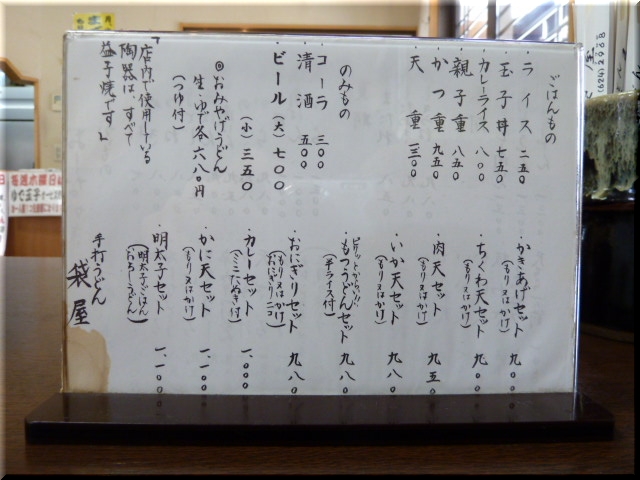 ごはんもの
・ライス 二五〇
・玉子丼 七五〇
・カレーライス 八〇〇
・親子重 八五〇
・かつ重 九五〇
・天重 一三〇〇
のみもの
・コーラ 三〇〇
・清酒 五〇〇
・ビール(大)七〇〇
(小)三五〇
◎おみやげうどん
生・ゆで各六八〇円
(つゆ付)
「店内で使用している
陶器は、すべて
益子焼です」
・かきあげセット 九〇〇
(もり又はかけ)
・ちくわ天セット 九〇〇
(もり又はかけ)
・肉天セット 九五〇
(もり又はかけ)
・いか天セット 九八〇
(もり又はかけ)
ピリッとからい!!
・もつうどんセット 九八〇
(半ライス付)
・おにぎりセット 九八〇
(もり又はかけ)
(おにぎり二コ)
・カレーセット 一、〇〇〇
(ミニたぬき付)
・かに天セット 一、一〇〇
(もり又はかけ)
・明太子セット 一、一〇〇
(明太子ごはん)
手打うどん
袋屋
(624)2968
毎週水曜日は